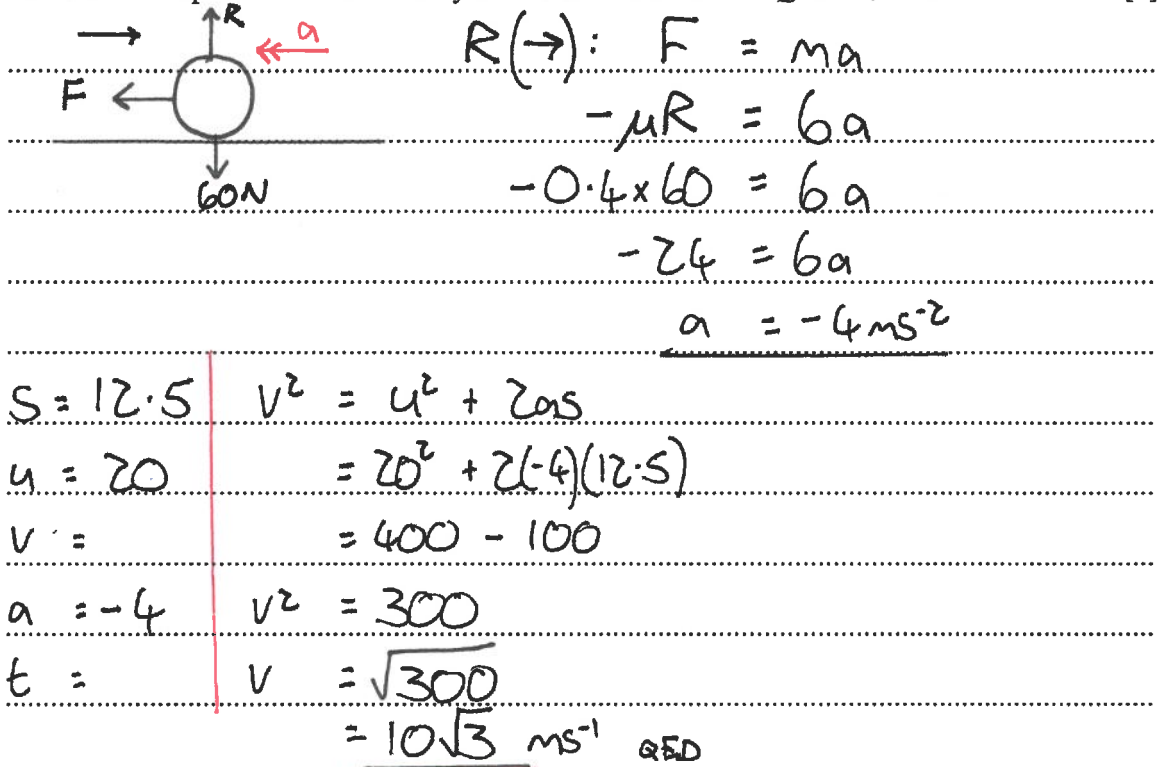 R
a
F
60N
R(→): F = ma
-μR = 6a
-0.4x60 = 6a
-24 = 6a
a = -4ms⁻²
S = 12.5 v² = u² + 2as
u = 20 = 20² + 2(-4)(12.5)
v = = 400 - 100
a = -4 v² = 300
t = v = √300
= 10√3 ms⁻¹ QED